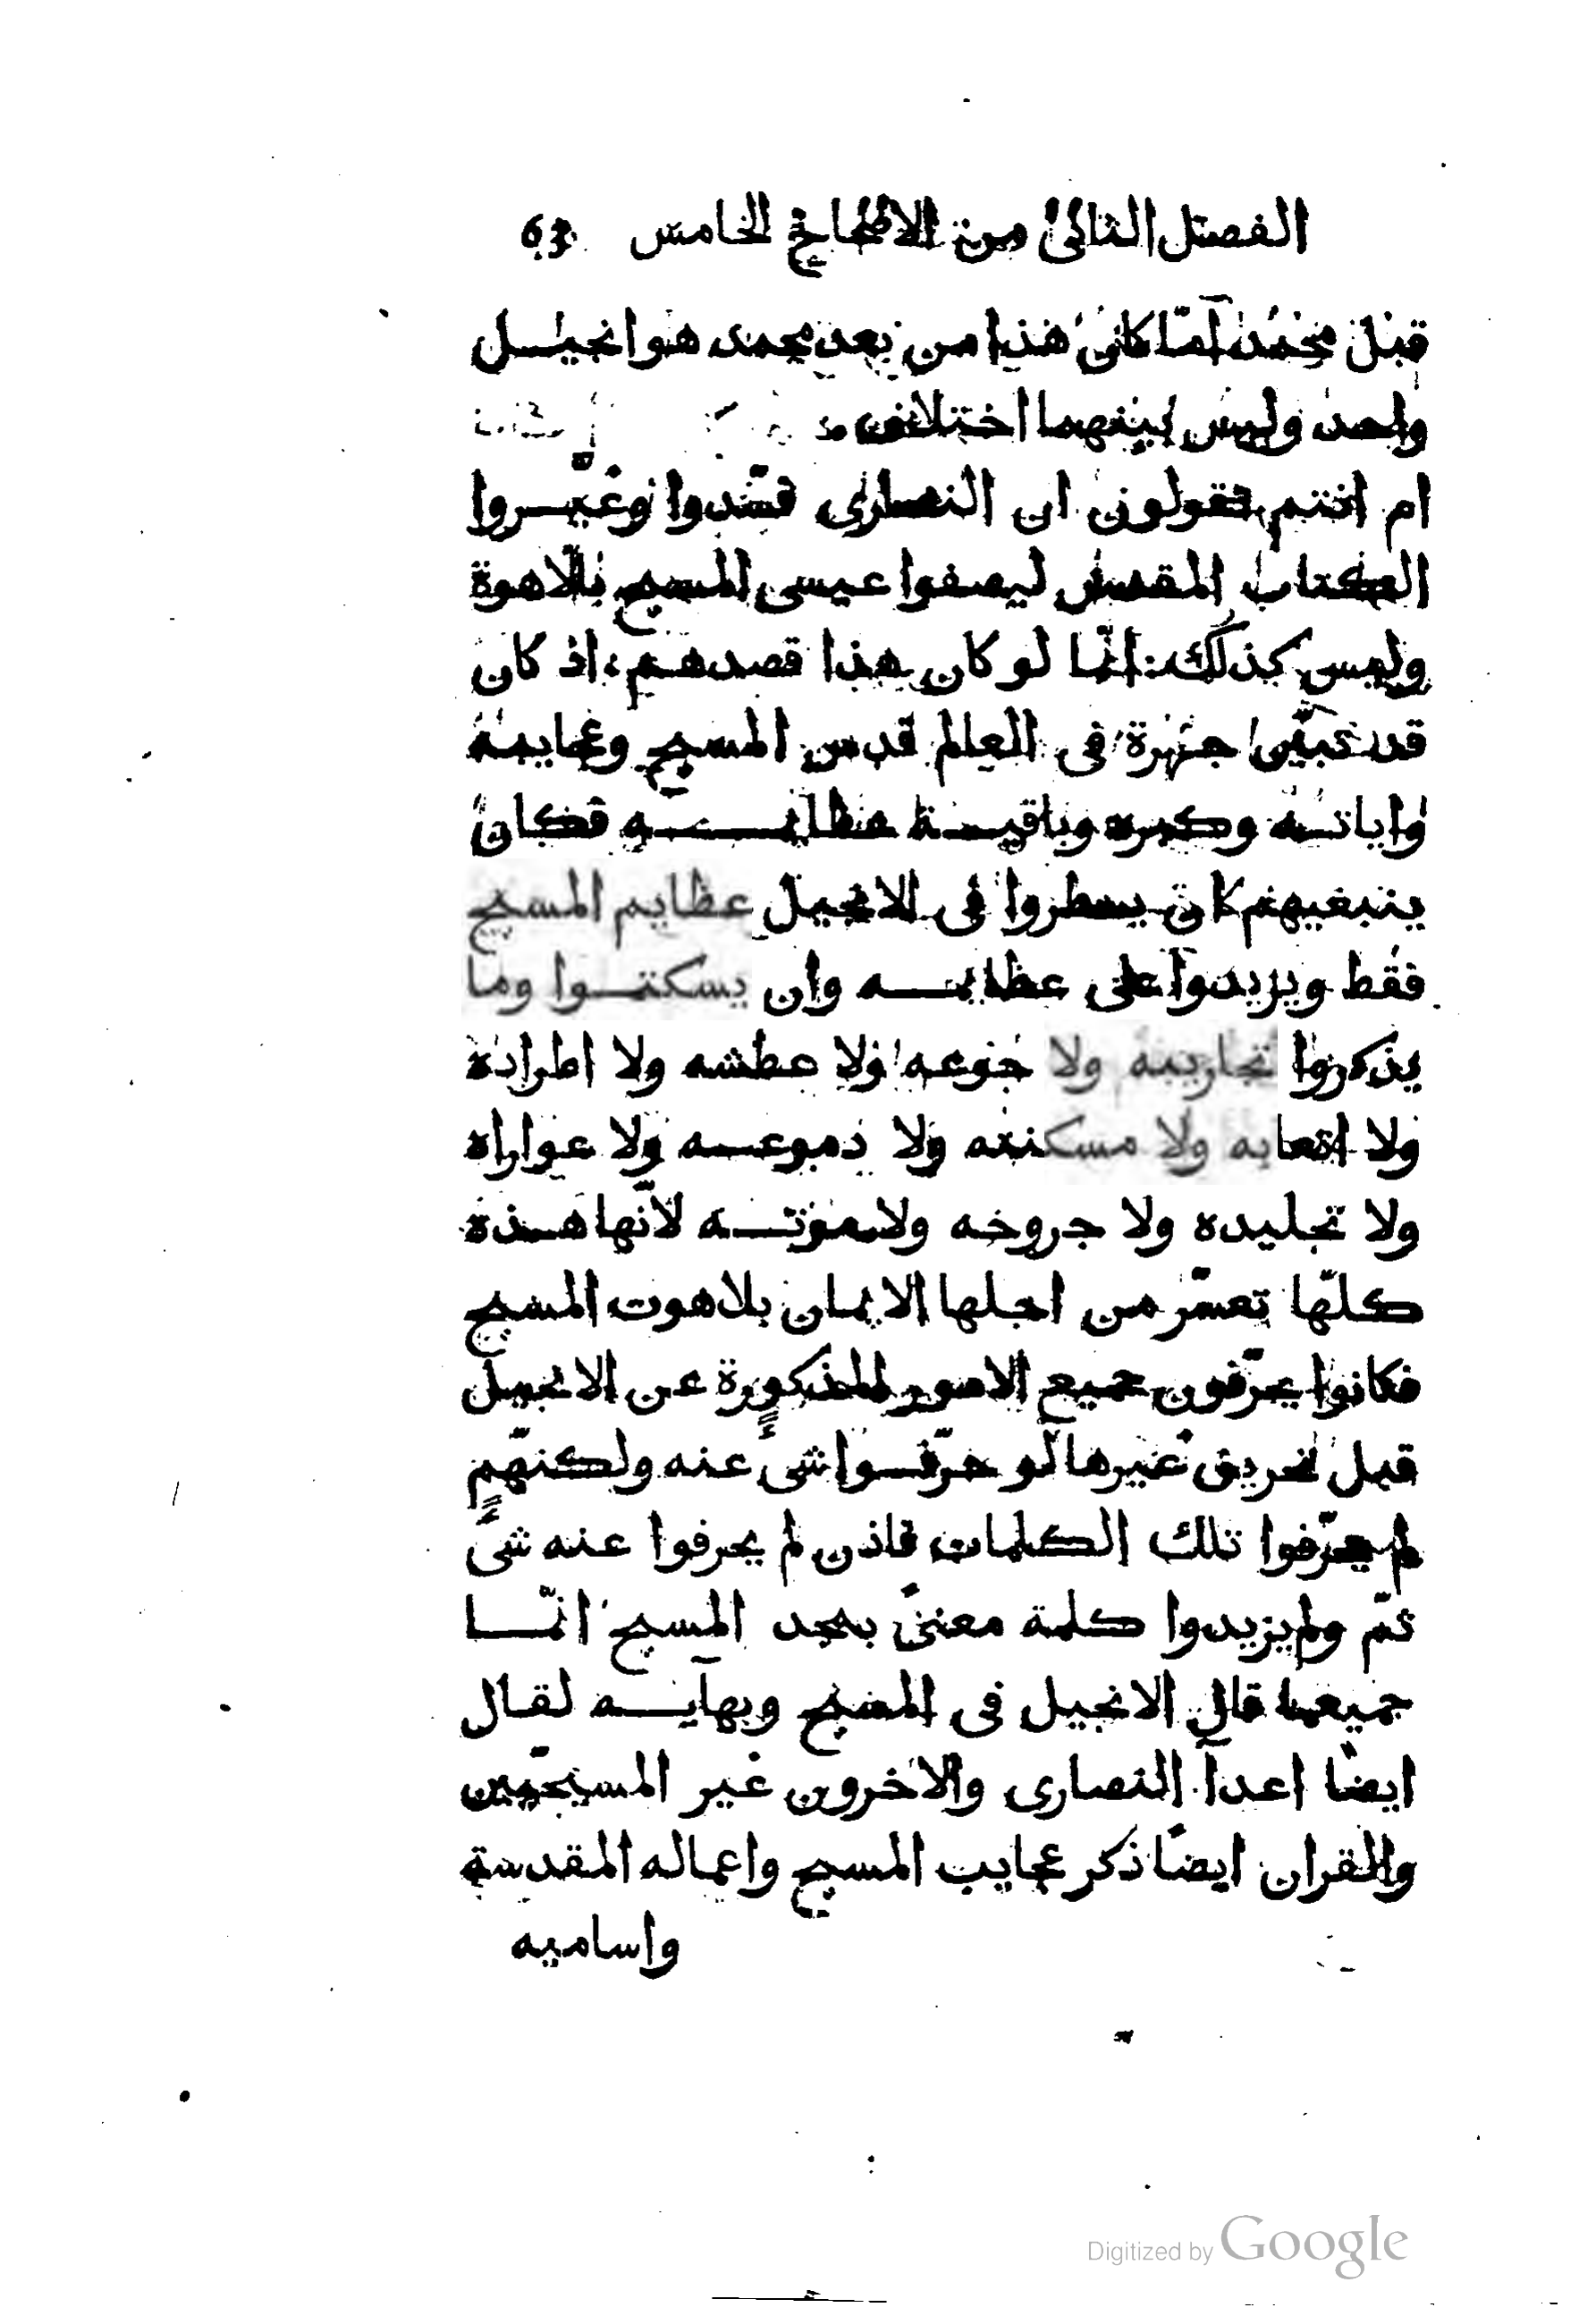 الفصل الثانى من الاصحاح الخامس 63
قبل محمد امّا كان هذا من بعد محمد هو انجيل
واحد وليس بينهما اختلاف
ام انتم تقولون ان النصارى فسّدوا وغيّروا
الكتاب المقدس ليصفوا عيسى المسيح بالّاهوة
وليس كذلك انّما لو كان هذا قصدهم اذ كان
قد تبيّن جهرة فى العالم قدس المسيح وعجايبه
واياته وكبره وباقية عظايمه فكان
ينبغيهم كان يسطروا فى الانجيل عظايم المسيح
فقط ويزيدوا على عظايمه وان يسكتوا وما
يذكروا تجاريبه ولا جوعه ولا عطشه ولا اطراده
ولا اتعابه ولا مسكنته ولا دموعه ولا عواراه
ولا تجليده ولا جروحه ولا موته لانّها هذه
كلّها تعسّر من اجلها الايمان بلاهوت المسيح
فكانوا يحرّفون جميع الامور المذكورة عن الانجيل
قبل تحريف غيرها لو حرّفوا شى عنه ولكنّهم
لم يحرّفوا تلك الكلمات فاذن لم يحرفوا عنه شى
ثمّ ولم يزيدوا كلمة معنىً بمجد المسيح انّما
جميعما قال الانجيل فى المسيح وبهآيه لقال
ايضا اعدآ النصارى والاخرون غير المسيحيّين
والقران ايضاً ذكر عجايب المسيح واعماله المقدسة
واساميه
Digitized by Google